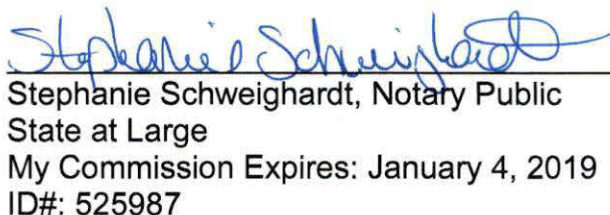 Stephanie Schweighardt
Stephanie Schweighardt, Notary Public
State at Large
My Commission Expires: January 4, 2019
ID#: 525987